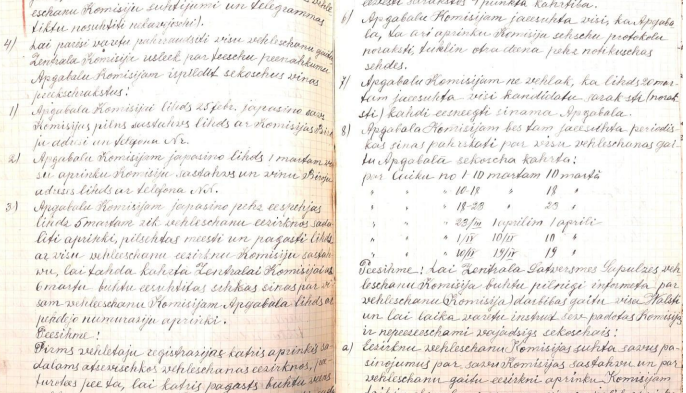 eschanu Komisiju suhtijumi un telegrammas
tiktu nosuhtiti nekawejoschi).
4) Lai pareisi waretu pahraudsiti wisu wehleschanu gaitu
Zentrala Komisija usleek par teeschu peenahkumu
Apgabalu Komisijam ispildit sekoschus winas
preekschrakstus:
1) Apgabalu Komisijai lihds 25 febr. japasino sawas
Komisijas pilns sastahws lihds ar Komisijas Biro-
ja adresi un telefona Nr.
2) Apgabalu Komisijam japasino lihds 1 martam wi-
su aprinku Komisiju sastahws un winu Biroju
adreses lihds ar telefona NN.
3) Apgabalu Komisijam japasino pehz eespehjas
lihds 5 martam zik wehleschanu eezirknos sada-
liti aprinki, pilsehtas meesti un pagasti lihds
ar wisu wehleschanu eezirknu Komisiju sastah-
wu, lai tahda kahrta Zentralai Komisijai us
6 martu buhtu eeruhtitas sehkas sinas par wi-
sam wehleschanu Komisijam Apgabala lihds ar
pehdejo numuraziju aprinki.
Peesihme:
Pirms wehletaju registrazijas katris aprinkis sa-
dalams atsewischkos wehleschanas eezirknos, pee-
turotes pee ta, lai katris pagasts buhtu wees
eezuti sarakstos 1 punkta kahrtiba.
6) Apgabalu Komisijam jaeesuhta wisi, ka Apgaba-
la, ta ari aprinku Komisiju sehschu protokolu
noraksti tuhlin otra deena pehz notikuschas
sehdes.
7) Apgabalu Komisijam ne wehlak, ka lihds 20 mar-
tam jaeesuhta wisi kandidatu saraksti (norak-
sti) kahdi eesneegti sinama Apgabala.
8) Apgabalu Komisijam bes tam jaeesuhta periodis-
kas sinas pahrskati par wisu wehleschanas gai-
tu Apgabala sekoscha kahrta:
par laiku no 1-10 martam 10 martā
" " " 10-18 " 18 "
" " " 18-23 " 23 "
" " " 23/III 1 aprilim 1 aprili
" " " 1/IV 10/IV 10 "
" " " 10/IV 19/IV 19 "
Peesihme: Lai Zentrala Satwersmes Sapulzes weh-
leschanu Komisija buhtu pilnigi informeta par
wehleschanu Komisiju darbibas gaitu wisa Walsti
un lai laika waretu instruet sew padotas Komisijas
ir nepeeeeschami wajadsigs sekoschais:
a) Eezirknu wehleschanu Komisijas suhta sawus pa-
sinojumus par sawu Komisijas sastahwu un par
wehleschanu gaitu eezirkni aprinku Komisijam